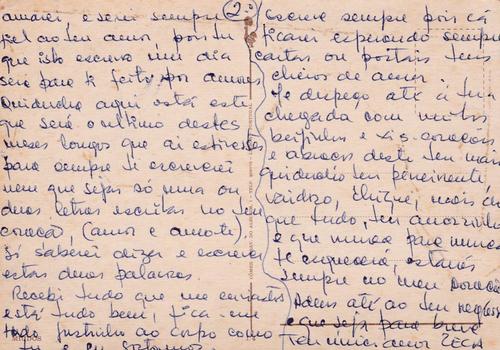 2
amarei, e serei sempre
fiel ao teu amor, por ti
que isto escrevo um dia
será para ti feito por amor
Quiduxho aqui está este
que será o ultimo destes
meses longos que ai estiveste
para sempre te escreverei
nem que seja só uma ou
duas letras escritas no teu
coração, (amor e amote)
Já saberei dizer e escrever
estas duas palavras
Recebi tudo que me enviaste
está tudo bem, fica-me
tudo justinho ao corpo como
tu e eu
escreve sempre pois cá
ficarei esperando sempre
cartas ou postais teus
cheios de amor.
Te despeço até à tua
chegada com muitos
beijinhos e corações
e abraços deste teu
queridinho teu
que tudo, teu amorzinho
e que nunca para nunca
te esquecerá, estarás
sempre no meu coração
Adeus até ao teu regresso
e que seja para breve
teu unico amor ZECA